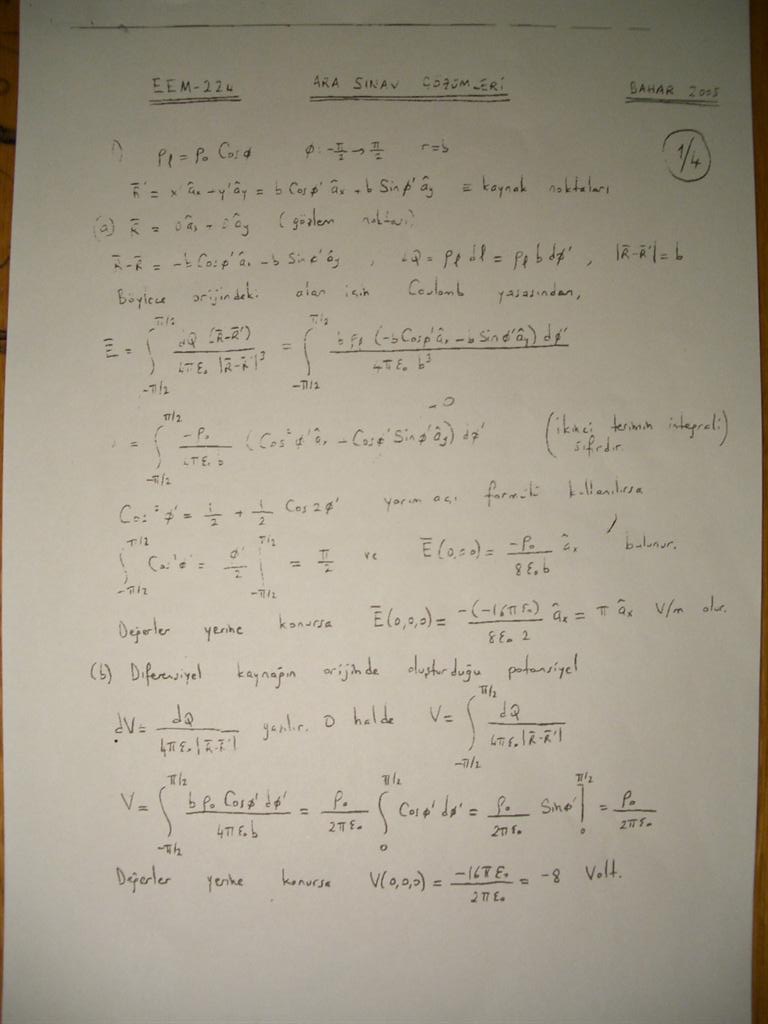 EEM-224 ARA SINAV ÇÖZÜMLERİ BAHAR 2005
1) ρℓ = ρ₀ Cosφ φ: -π/2 → π/2 r=b 1/4
R̄' = x' âx + y' ây = b Cosφ' âx + b Sinφ' ây ≡ kaynak noktaları
(a) R̄ = 0 âx + 0 ây (gözlem noktası)
R̄-R̄' = -b Cosφ' âx - b Sinφ' ây , dQ = ρℓ dl = ρℓ b dφ' , |R̄-R̄'| = b
Böylece orijindeki alan için Coulomb yasasından,
Ē = ∫_{-π/2}^{π/2} dQ (R̄-R̄') / 4πε₀ |R̄-R̄'|³ = ∫_{-π/2}^{π/2} b ρℓ (-b Cosφ' âx - b Sinφ' ây) dφ' / 4πε₀ b³
= ∫_{-π/2}^{π/2} -ρ₀ / 4πε₀ b (Cos²φ' âx - Cosφ' Sinφ' ây) dφ' → 0 (ikinci terimin integrali sıfırdır.)
Cos²φ' = 1/2 + 1/2 Cos2φ' yarım açı formülü kullanılırsa
∫_{-π/2}^{π/2} Cos²φ' = φ'/2 |_{-π/2}^{π/2} = π/2 ve Ē(0,0,0) = -ρ₀ / 8ε₀ b âx bulunur.
Değerler yerine konursa Ē(0,0,0) = -(-16πε₀) / 8ε₀ 2 âx = π âx V/m olur.
(b) Diferensiyel kaynağın orijinde oluşturduğu potansiyel
dV = dQ / 4πε₀ |R̄-R̄'| yazılır. O halde V = ∫_{-π/2}^{π/2} dQ / 4πε₀ |R̄-R̄'|
V = ∫_{-π/2}^{π/2} b ρ₀ Cosφ' dφ' / 4πε₀ b = ρ₀ / 2πε₀ ∫_{0}^{π/2} Cosφ' dφ' = ρ₀ / 2πε₀ Sinφ' |_{0}^{π/2} = ρ₀ / 2πε₀
Değerler yerine konursa V(0,0,0) = -16πε₀ / 2πε₀ = -8 Volt.